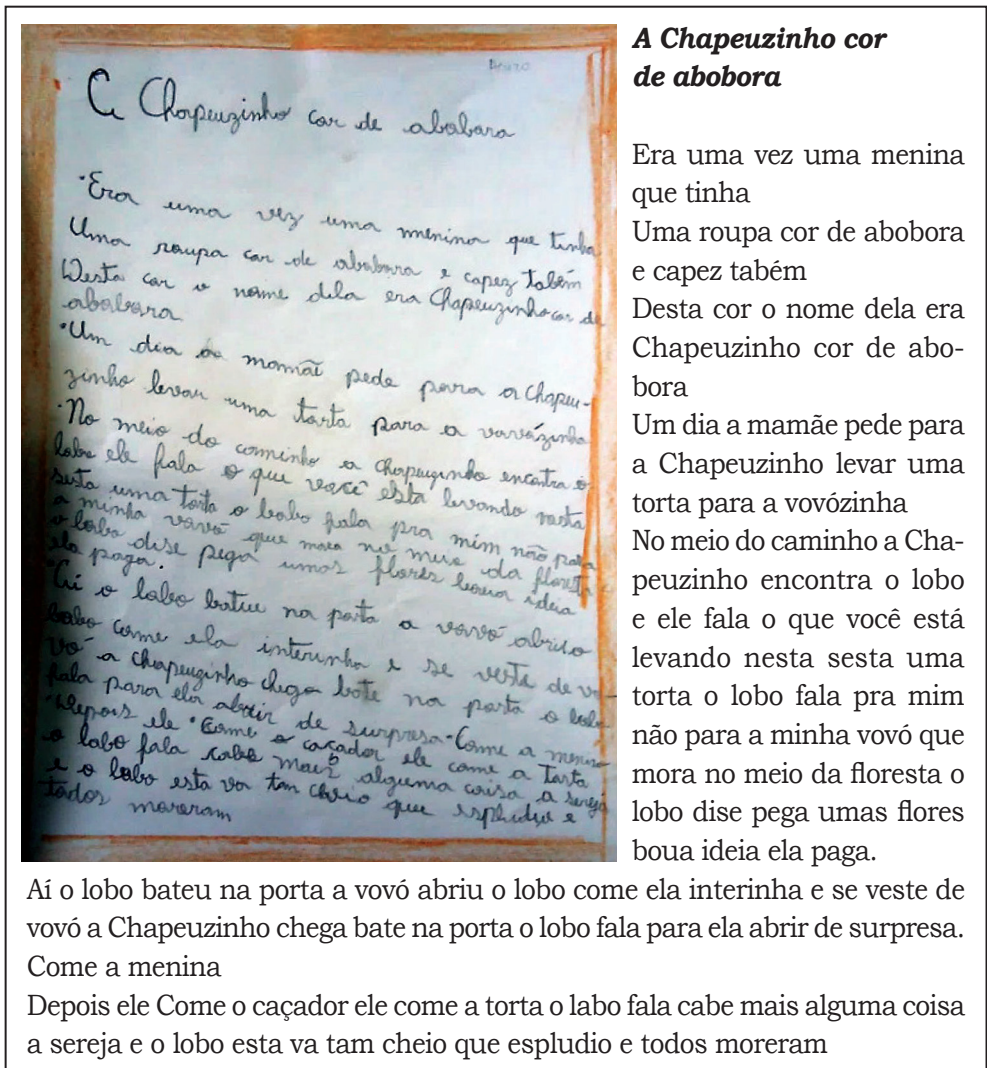 Aturo
A Chapeuzinho cor de abobora
Era uma vez uma menina que tinha
Uma roupa cor de abobora e capez tabém
Desta cor o nome dela era Chapeuzinho cor de
abobora
Um dia a mamãe pede para a Chapeu-
zinho levar uma torta para a vovózinha
No meio do caminho a Chapeuzinho encontra o
lobo ele fala o que você esta levando nesta
sesta uma torta o lobo fala pra mim não para
a minha vovó que mora no meio da floresta
o lobo dise pega umas flores boua ideia
ela paga.
Aí o lobo bateu na porta a vovó abriu o
lobo come ela interinha e se veste de vo-
vó a chapeuzinho chega bate na porta o lobo
fala para ela abrir de surpresa Come a menina
Depois ele Come o caçador ele come a torta
o labo fala cabe mais alguma coisa a sereja
e o lobo esta va tam cheio que espludiu e
todos moreram
A Chapeuzinho cor
de abobora
Era uma vez uma menina
que tinha
Uma roupa cor de abobora
e capez tabém
Desta cor o nome dela era
Chapeuzinho cor de abo-
bora
Um dia a mamãe pede para
a Chapeuzinho levar uma
torta para a vovózinha
No meio do caminho a Cha-
peuzinho encontra o lobo
e ele fala o que você está
levando nesta sesta uma
torta o lobo fala pra mim
não para a minha vovó que
mora no meio da floresta o
lobo dise pega umas flores
boua ideia ela paga.
Aí o lobo bateu na porta a vovó abriu o lobo come ela interinha e se veste de
vovó a Chapeuzinho chega bate na porta o lobo fala para ela abrir de surpresa.
Come a menina
Depois ele Come o caçador ele come a torta o labo fala cabe mais alguma coisa
a sereja e o lobo esta va tam cheio que espludio e todos moreram